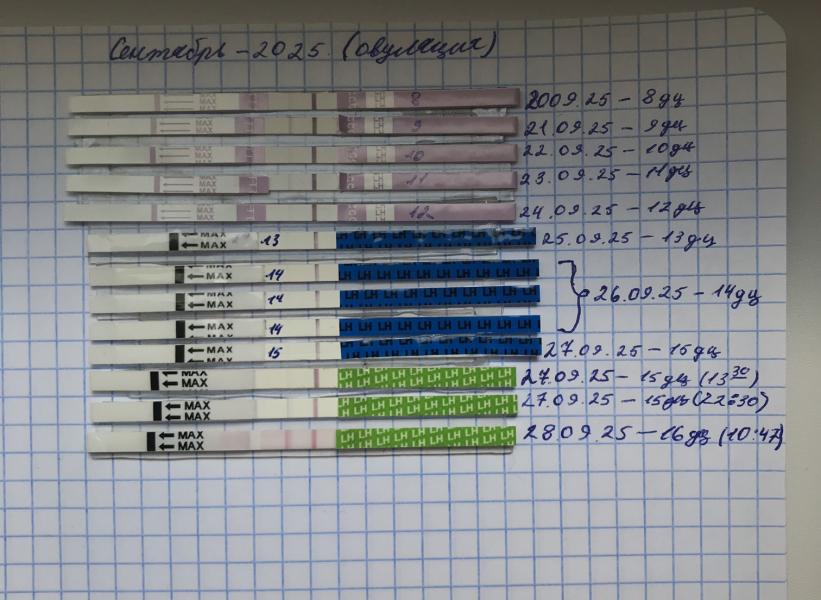 Сентябрь - 2025 (овуляция)
MAX MAX 8 2009.25 - 8дц
MAX MAX 9 21.09.25 - 9дц
MAX MAX MAX 10 22.09.25 - 10дц
MAX MAX MAX 11 23.09.25 - 11дц
MAX MAX MAX 12 24.09.25 - 12дц
MAX MAX 13 LH LH LH LH LH LH LH LH LH 25.09.25 - 13дц
MAX MAX 14 LH LH LH LH LH LH LH LH LH
MAX MAX 14 LH LH LH LH LH LH LH LH LH 26.09.25 - 14дц
MAX 14 LH LH LH LH LH LH LH LH LH
MAX 15 LH LH LH LH LH LH LH LH LH 27.09.25 - 15дц
MAX MAX LH LH LH LH LH LH LH LH 27.09.25 - 15дц (13 30)
MAX MAX LH LH LH LH LH LH LH LH 27.09.25 - 15дц (22:30)
MAX MAX LH LH LH LH LH LH LH LH 28.09.25 - 16дц (10:47)